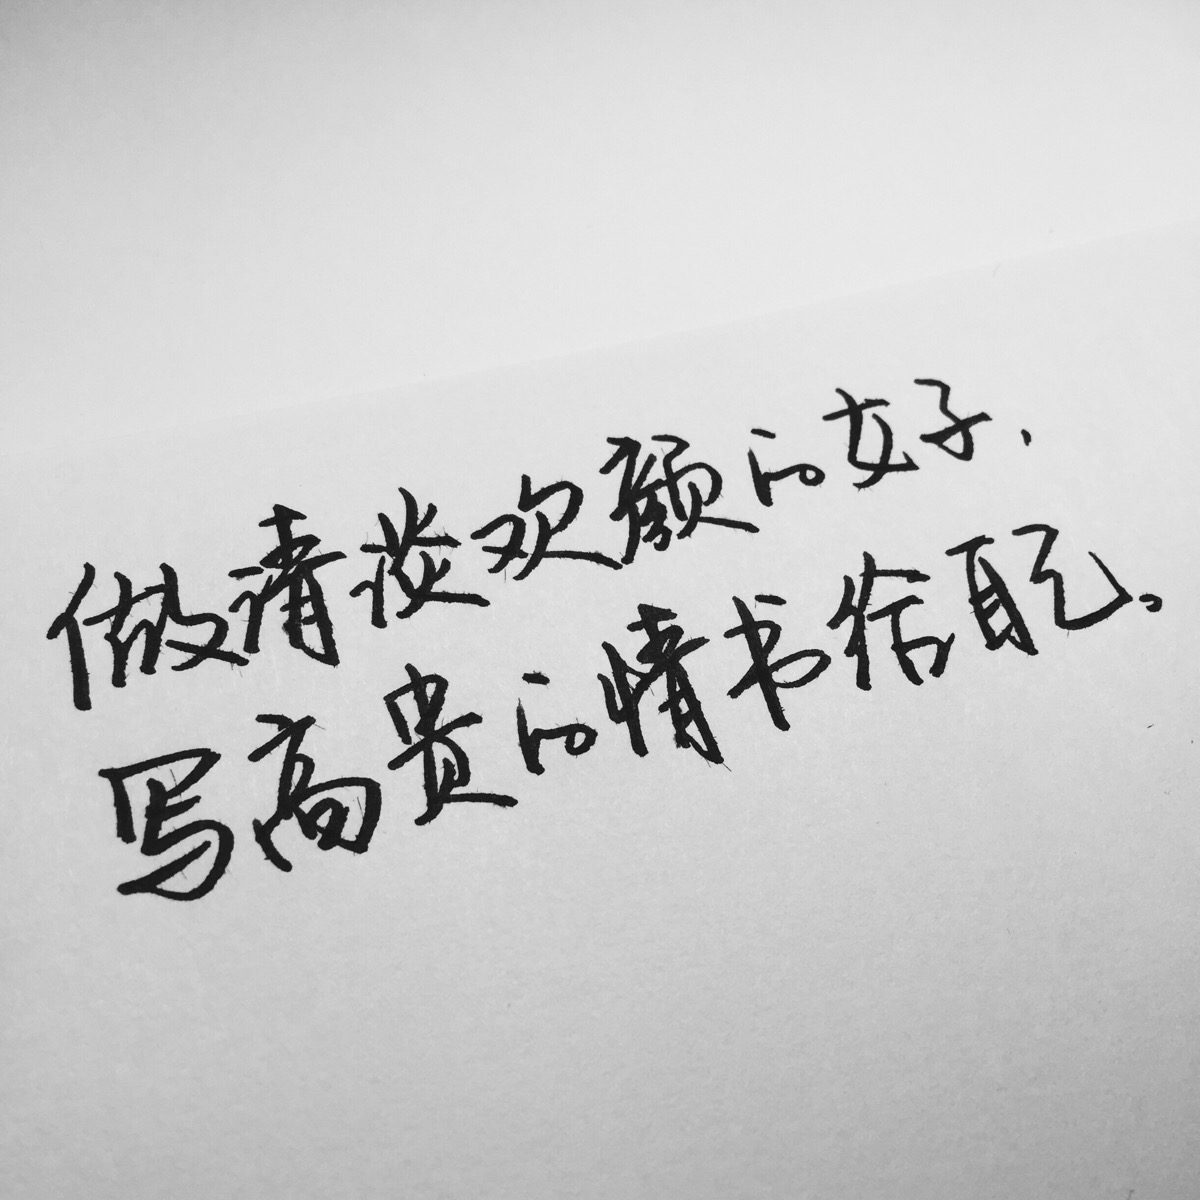 做清淡欢颜的女子,
写高贵的情书给自己。